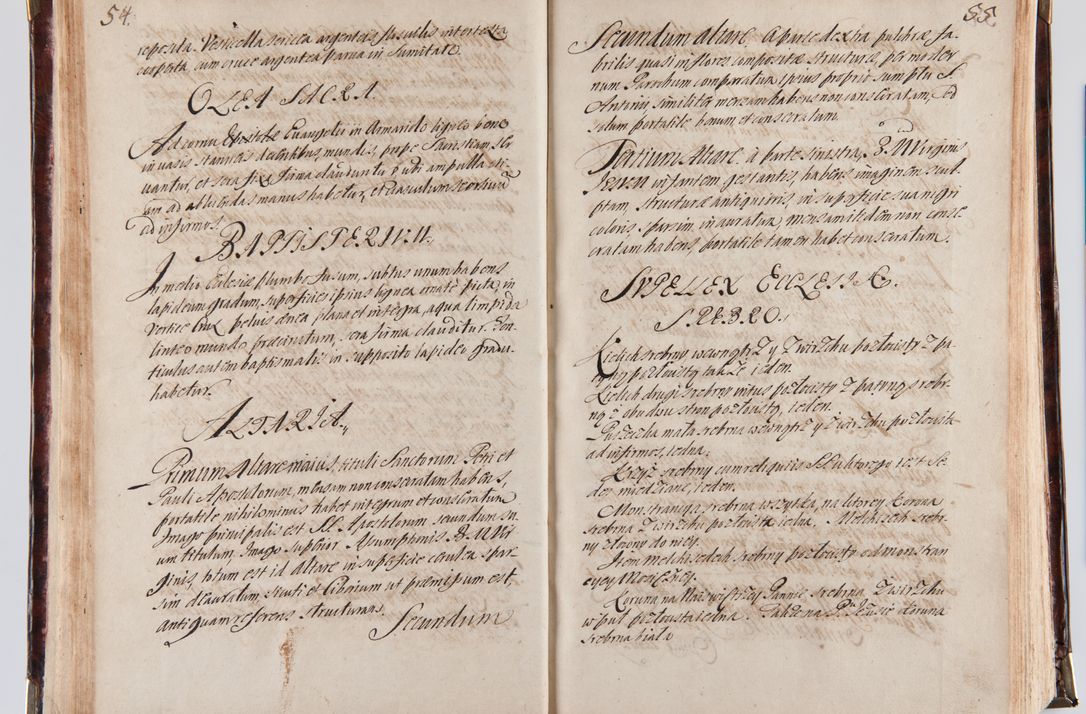 54.
reposita. Vericella sericea argenteis fusuilis intertexta
cooperta cum cruce argentea parua in sumitate.
OLEA SACRA.
Ad cornu Epistolæ Euangelii in Armariolo ligneo bono
in vasis stanneis decentibus, mundis, prope Sacristiam ser
uantur, et sera fixa firma clauduntur ubi ampulla eti
am ad abluendas manus habetur, et vasculum seorsiuum
ad infirmos.
BAPTISTERIUM.
In medio Ecclesiæ plumbo fusum, subtus unum habens
lapideum gradum, superficies ipsius lignea ornate picta, in
vertice crux, peluis ænea, plana et integra, aqua limpida
linteo mundo præcinctum, sera firma clauditur. Fon
ticulus autem baptismalis in supposito lapideo gradu
habetur.
ALTARIA.
Primum Altare maius, tituli Sanctorum Petri et
Pauli Apostolorum, mensam non consecratam habens,
portatile nihilominus habet integrum et consecratum
Imago principalis est SS. Apostolorum secundum su
um titulum, Imago superior Assumptionis B. M. Vir
ginis, totum est id altare in superficie cærulea spar
sim deauratum, sicuti et Ciborium ut præmissum est,
antiquam referens structuram.
Secundum
55.
Secundum altare à parte dextra pulchræ fa
brilis quasi in flores compositæ structuræ, per moder
num Parochum comparatum ipsius proprio sumptu S.
Antonii similiter mensam habens non consecratam, sed
solum portatile bonum et consecratum.
Tertium Altare à parte sinistra, B. M. Virginis
Jesum infantem gestantis, habens imaginem scul
ptam, structuræ antiquioris in superficie sua nigri
coloris sparsim inauratum, mensam itidem non conse
cratam habens, portatile tamen habet consecratum.
SVPELLEX ECCLESIÆ.
SREBRO.
Kielich srebrny wewnątrz y z wierzchu pozłoisty z pa
tyny pozłoisty także ieden.
Kielich drugi srebrny intus pozłoisty z patyną srebr
ną z obudwu stron pozłoistą, ieden.
Puszeczka mała srebrna wewnątrz y z wierzchu pozłoista
ad infirmos, iedna.
Krzyż srebrny cum reliquiis S. Wiktorego iest Se
des miedziane, ieden.
Monstrancya srebrna wszytka, na ktorey Korona
srebrna z wierzchu pozłoista iedna. Melchisech srebr
ny złoiony do niey.
Item melchisedech srebrny pozłoisty od monstran
cyey Mnieyszey.
Koruna na Nayświętszey Pannie srebrna z wierzchu
w pul pozłoista iedna. Także na P. Jezusie druga
srebrna biała